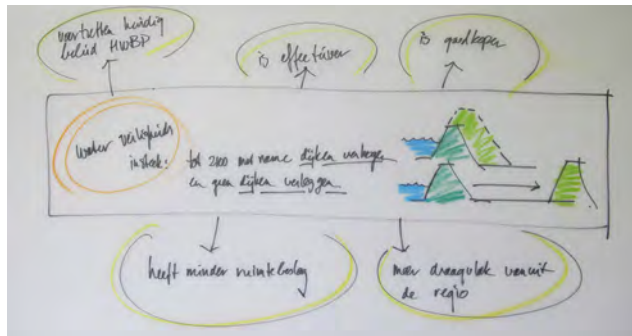 voortzetten huidig
beleid HWBP
is effectiever
is goedkoper
water veiligheid
insteek:
tot 2100 met name dijken verhogen
en geen dijken verleggen
heeft minder ruimtebeslag
meer draagvlak vanuit
de regio